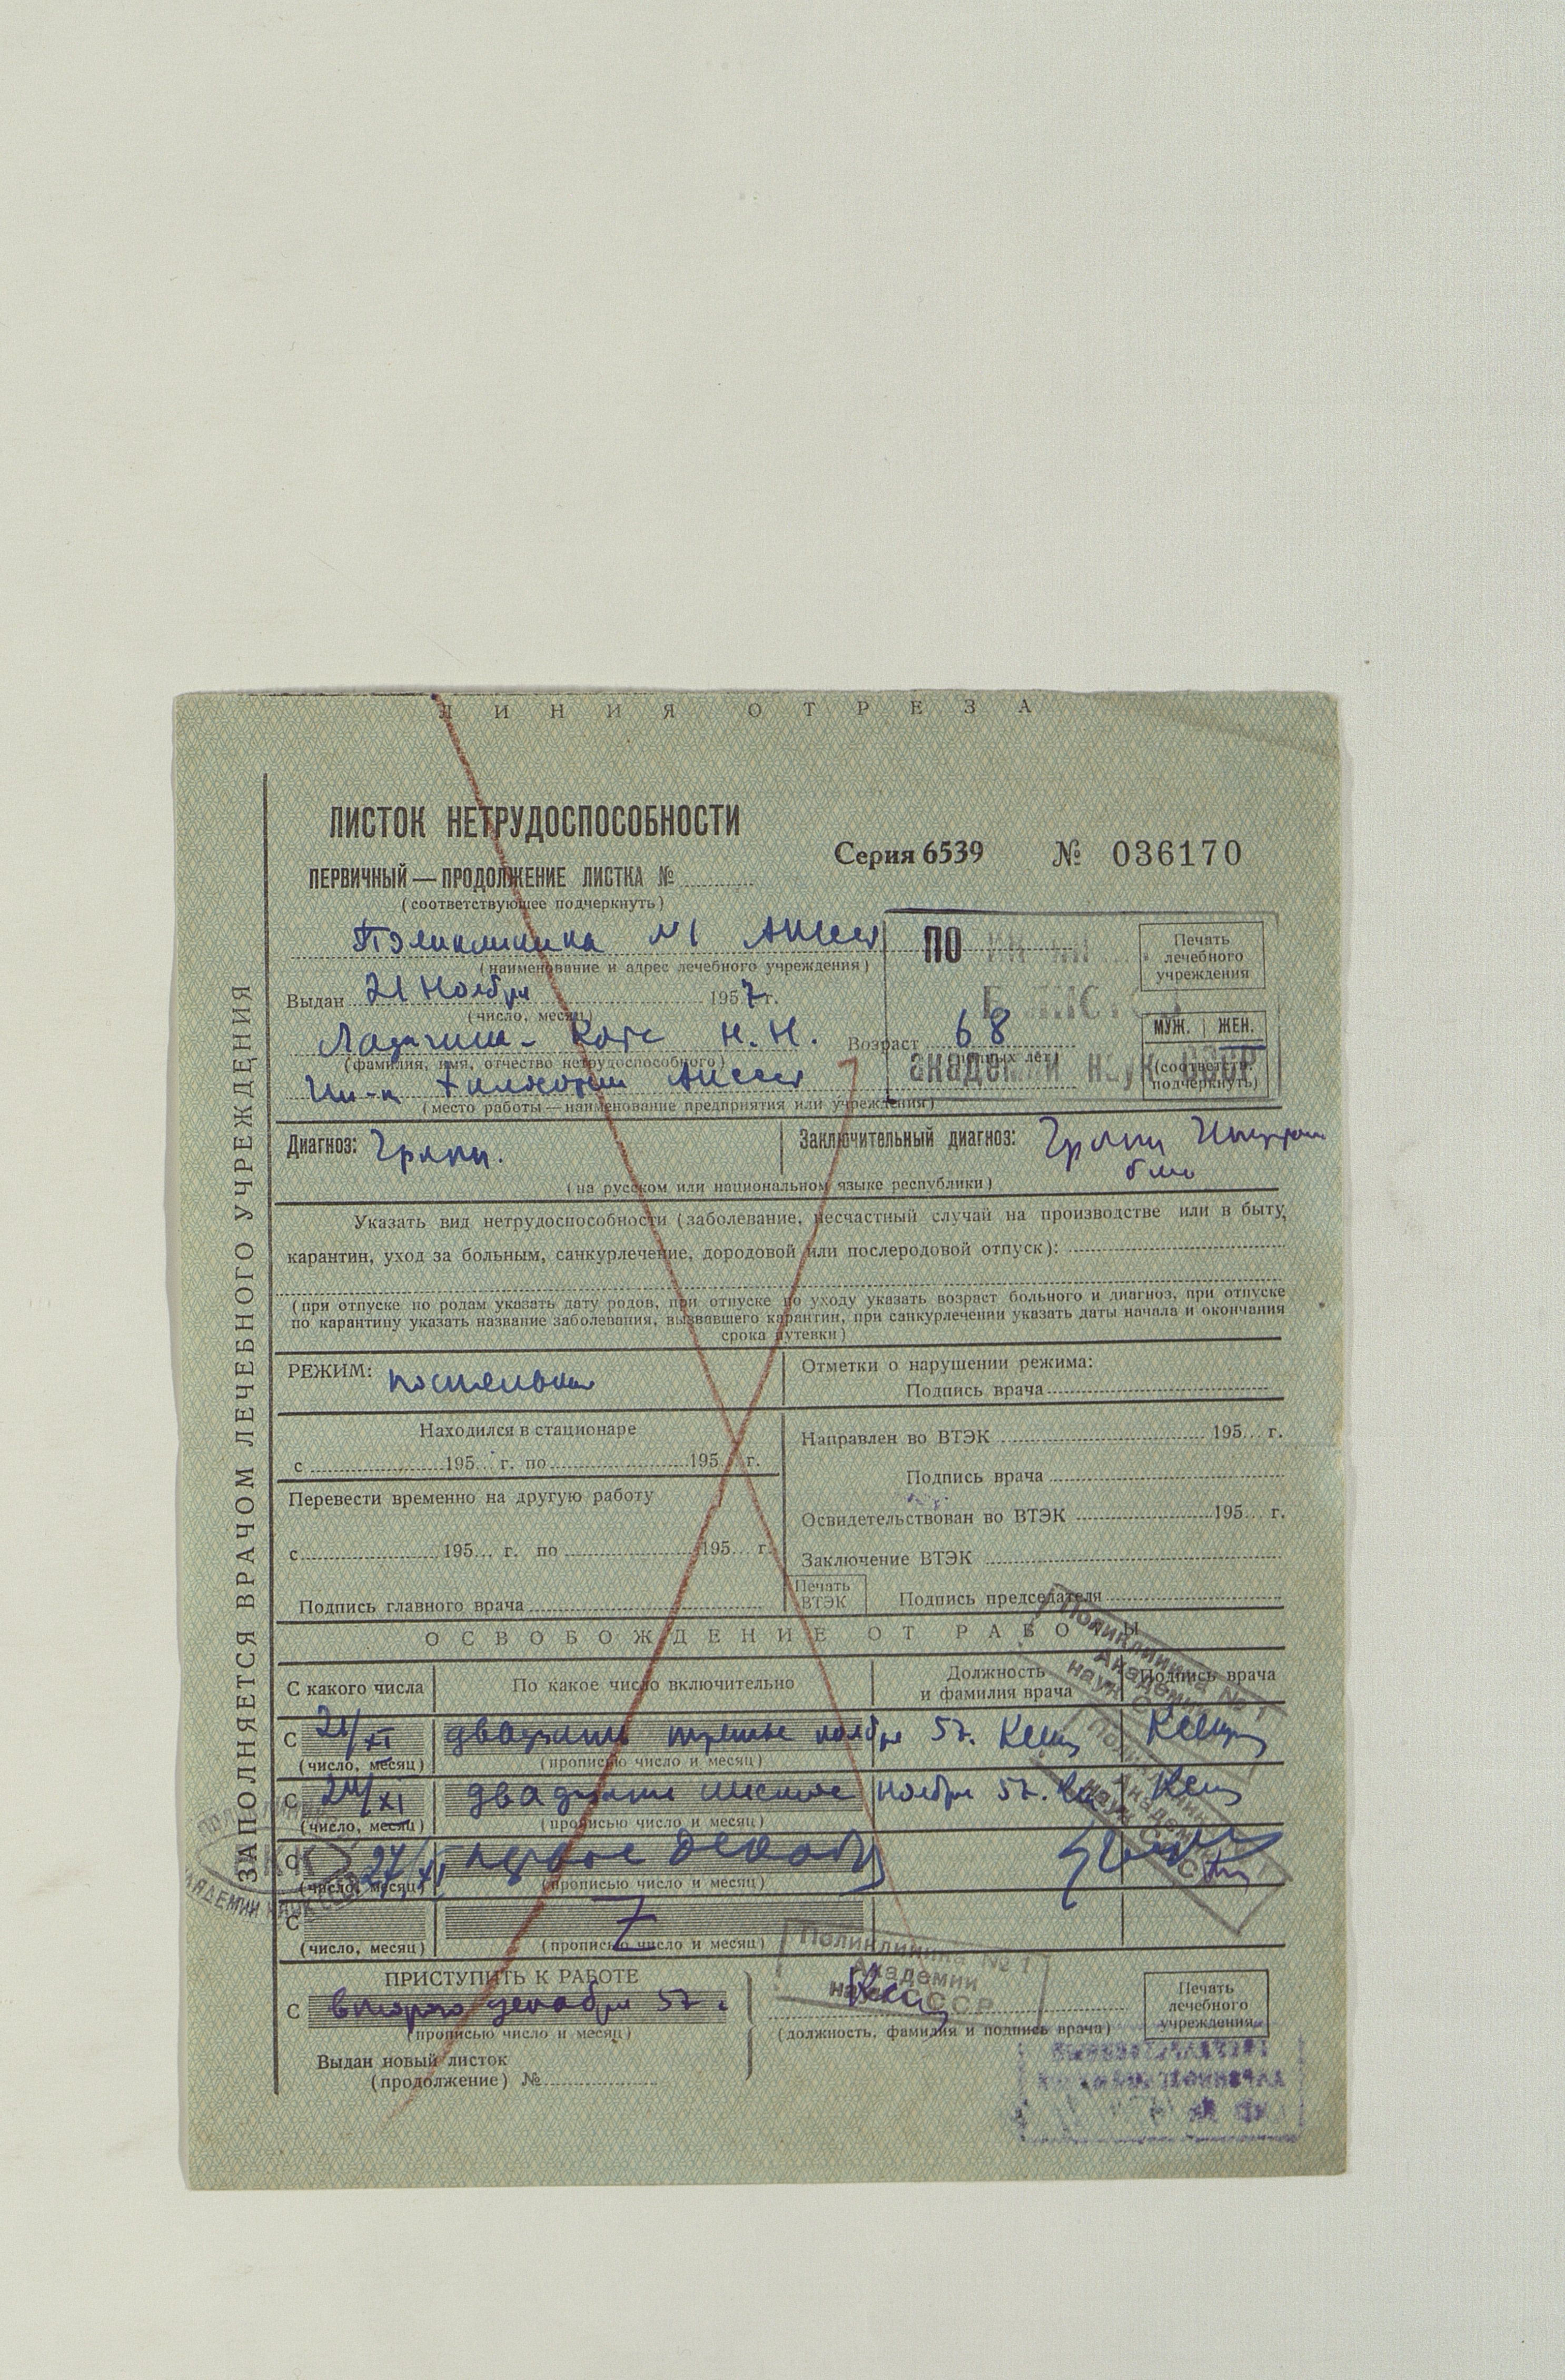 ЛИНИЯ ОТРЕЗА
ЗАПОЛНЯЕТСЯ ВРАЧОМ ЛЕЧЕБНОГО УЧРЕЖДЕНИЯ
ЛИСТОК НЕТРУДОСПОСОБНОСТИ
Серия 6539 № 036170
ПЕРВИЧНЫЙ — ПРОДОЛЖЕНИЕ ЛИСТКА №
(соответствующее подчеркнуть)
Поликлиника №1 АН СССР
(наименование и адрес лечебного учреждения)
Печать
лечебного
учреждения
Выдан 21 Ноября 1957 г.
(число, месяц)
Ладыгина-Котс Н.Н. Возраст 68
(фамилия, имя, отчество нетрудоспособного)
МУЖ. ЖЕН.
(соответств. подчеркнуть)
академии наук СССР
Ин-т философии АН СССР
(место работы — наименование предприятия или учреждения)
Диагноз: Грипп.
Заключительный диагноз: Грипп
(на русском или национальном языке республики)
Указать вид нетрудоспособности (заболевание, несчастный случай на производстве или в быту,
карантин, уход за больным, санкурлечение, дородовой или послеродовой отпуск):
(при отпуске по родам указать дату родов, при отпуске по уходу указать возраст больного и диагноз, при отпуске
по карантину указать название заболевания, вызвавшего карантин, при санкурлечении указать даты начала и окончания
срока путевки)
РЕЖИМ: постельный
Отметки о нарушении режима:
Подпись врача
Находился в стационаре
с 195 г. по 195 г.
Направлен во ВТЭК 195 г.
Подпись врача
Перевести временно на другую работу
с 195 г. по 195 г.
Освидетельствован во ВТЭК 195 г.
Заключение ВТЭК
Подпись главного врача
Печать
ВТЭК
Подпись председателя
ОСВОБОЖДЕНИЕ ОТ РАБОТЫ
С какого числа
По какое число включительно
Должность
и фамилия врача
Подпись врача
С 21/XI двадцать третье ноября 57.
(число, месяц) (прописью число и месяц)
С 24/XI двадцать шестое ноября 57.
(число, месяц) (прописью число и месяц)
С 27/XI первое декабря
(число, месяц) (прописью число и месяц)
С Z
(число, месяц) (прописью число и месяц)
Поликлиника № 1
Академии
наук СССР
ПРИСТУПИТЬ К РАБОТЕ
С второго декабря 57 г.
(прописью число и месяц)
(должность, фамилия и подпись врача)
Печать
лечебного
учреждения
Выдан новый листок
(продолжение) №